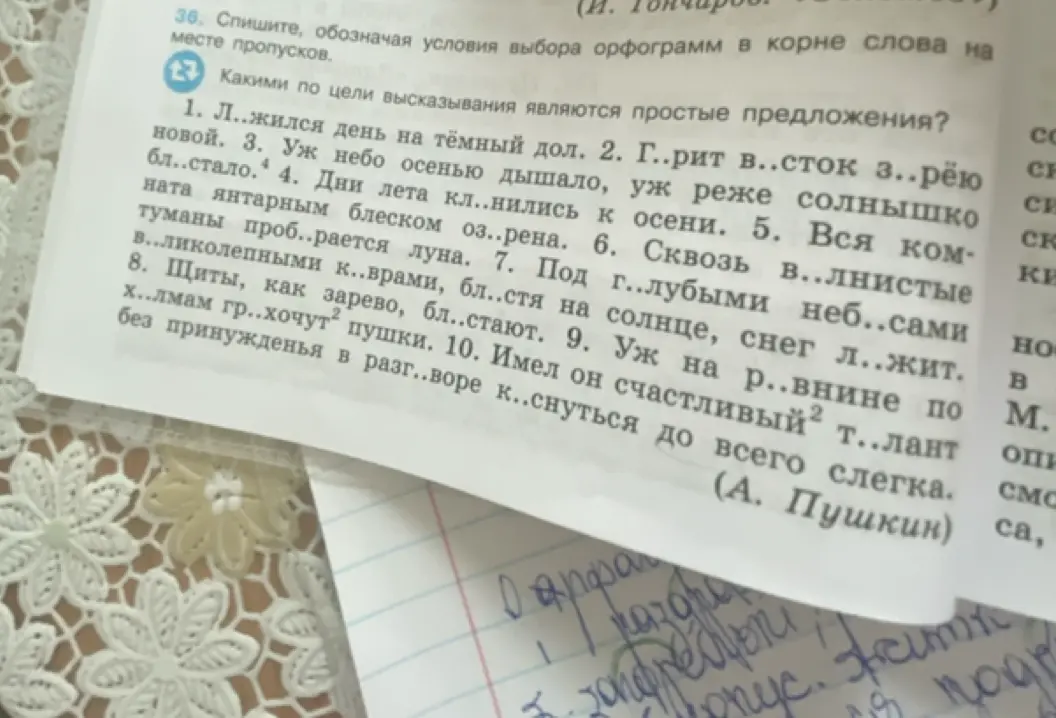 (И. Гончаров.
36. Спишите, обозначая условия выбора орфограмм в корне слова на
месте пропусков.
Какими по цели высказывания являются простые предложения?
1. Л..жился день на тёмный дол. 2. Г..рит в..сток з..рёю
новой. 3. Уж небо осенью дышало, уж реже солнышко
бл..стало.⁴ 4. Дни лета кл..нились к осени. 5. Вся ком-
ната янтарным блеском оз..рена. 6. Сквозь в..лнистые
туманы проб..рается луна. 7. Под г..лубыми неб..сами
в..ликолепными к..врами, бл..стя на солнце, снег л..жит.
8. Щиты, как зарево, бл..стают. 9. Уж на р..внине по
х..лмам гр..хочут² пушки. 10. Имел он счастливый² т..лант
без принужденья в разг..воре к..снуться до всего слегка.
(А. Пушкин)
ск
ки
но
в
М.
опи
смо
са,